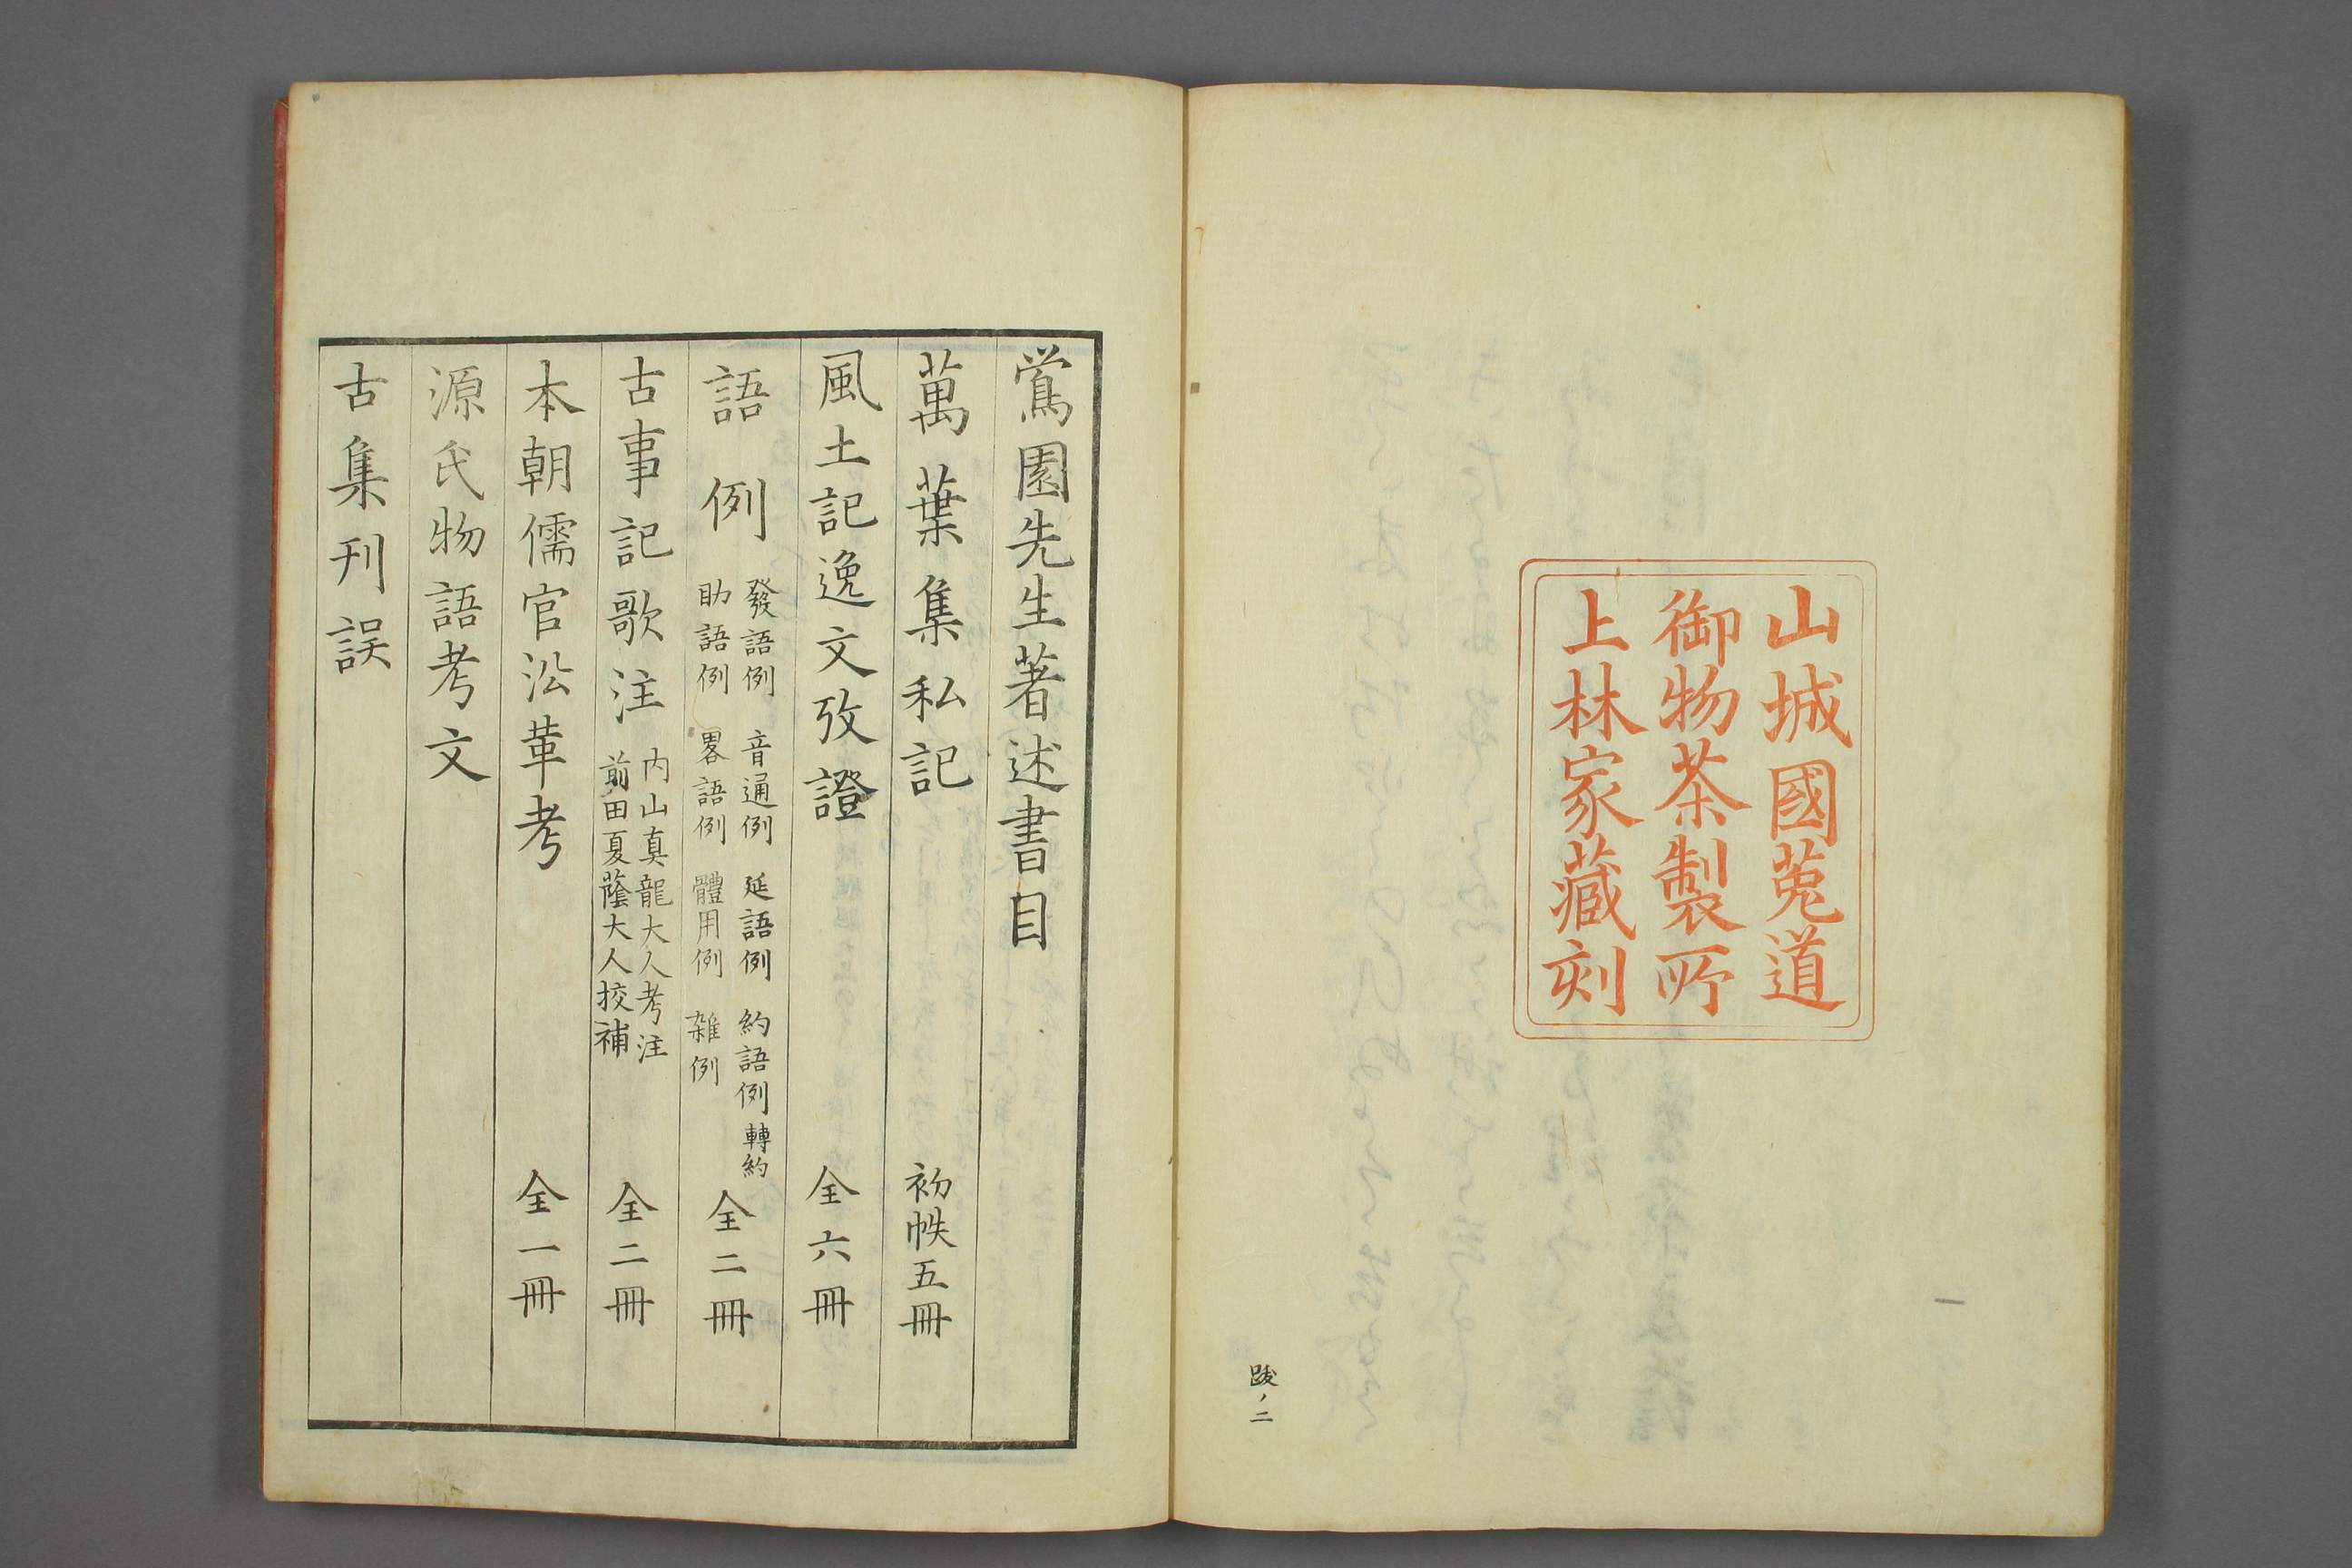 山城國菟道
御物茶製所
上林家藏刻
跋ノ二
鶯園先生著述書目
萬葉集私記 初帙五冊
風土記逸文攷證 全六冊
語例 發語例 音通例 延語例 約語例 轉約
助語例 畧語例 體用例 雑例 全二冊
古事記歌注 内山真龍大人考注
前田夏蔭大人挍補 全二冊
本朝儒官沿革考 全一冊
源氏物語考文
古集刊誤